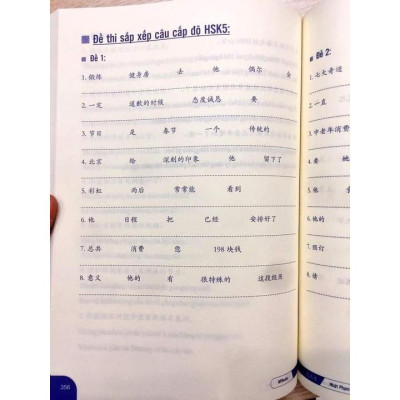 Đề thi sắp xếp câu cấp độ HSK5:
Đề 1:
1. 锻炼 健身房 去 他 偶尔 会
2. 一定 道歉的时候 态度诚恳 要
3. 节目 是 春节 一个 传统的
4. 北京 给 深刻的印象 他 留下了
5. 彩虹 雨后 常常能 看到
6. 他 日程 把 已经 安排好了
7. 总共 消费 您 198 块钱
8. 意义 他的 有 很特殊的 这段经历
356
Đề 2:
1. 七大奇迹
2. 一直
3. 中老年消费
4. 要 她
5. 他
6. 他的
7. 预订
8. 请